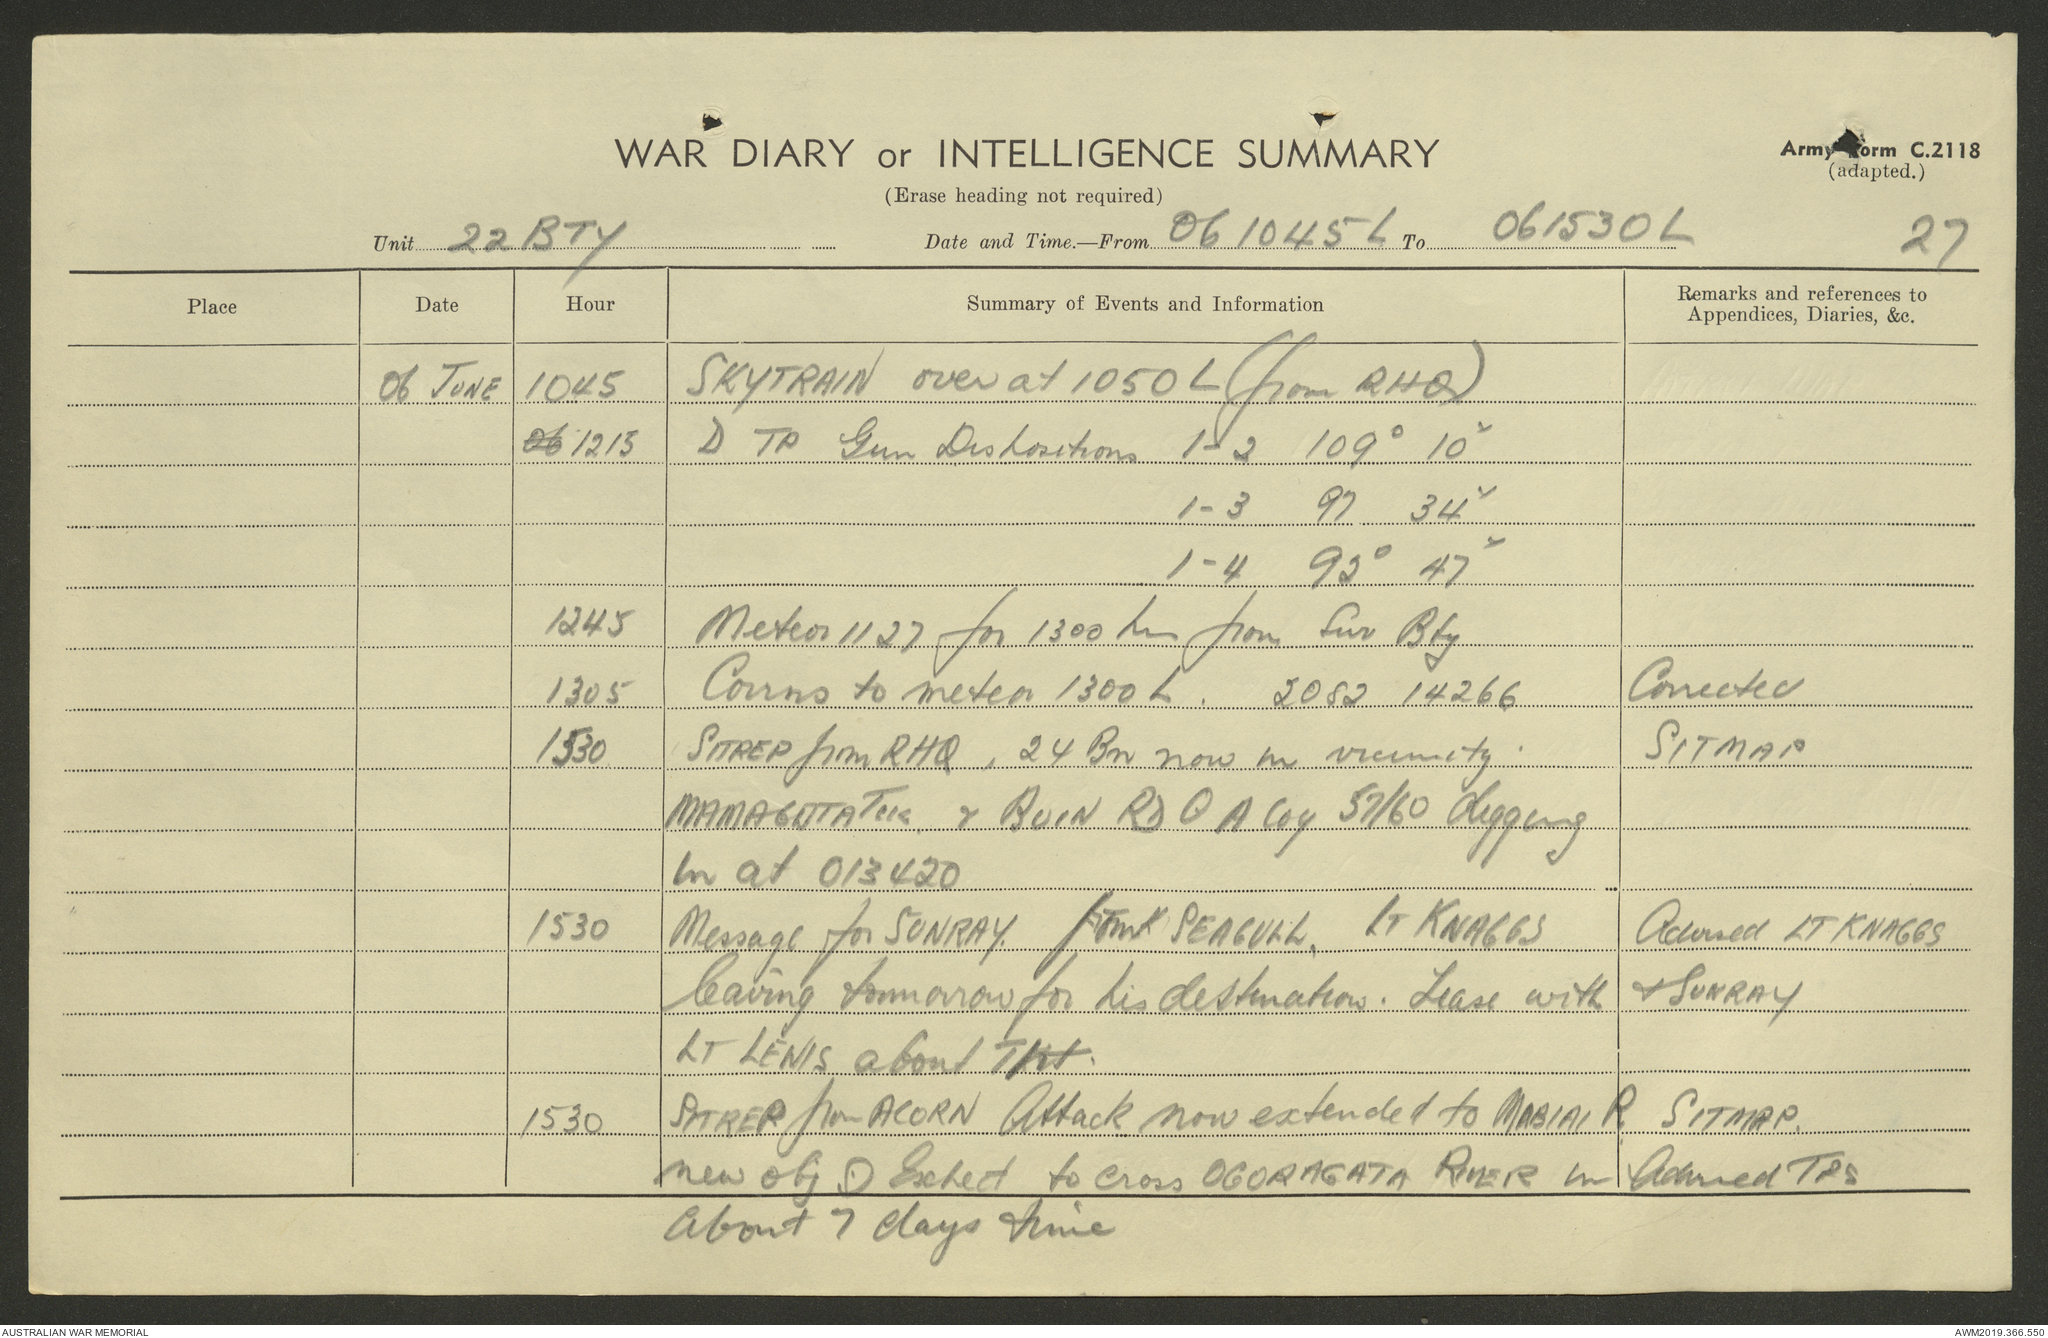 WAR DIARY or INTELLIGENCE SUMMARY
(Erase heading not required)
Army Form C.2118
(adapted.)
Unit 22 BTY Date and Time.—From 061045L To 061530L 27
Place Date Hour Summary of Events and Information Remarks and references to Appendices, Diaries, &c.
06 JUNE 1045 SKYTRAIN over at 1050 L (from RHQ)
06 1215 D TP Gun Dispositions 1-2 109° 10ˣ
1-3 97 34ˣ
1-4 92° 47ˣ
1245 Meteor 1127 for 1300 hrs from Sur Bty
1305 Corrns to meteor 1300 L. 2082 14266 Corrected
1530 SITREP from RHQ, 24 Bn now in vicinity SITMAP
MAMAGOTA Trk & BUIN RD A Coy 57/60 digging
in at 013420
1530 Message for SUNRAY from SEAGULL. LT KNAGGS Advised LT KNAGGS
leaving tomorrow for his destination. Liase with & SUNRAY
LT LENIS about
1530 SITREP from ACORN Attack now extended to MOBIAI R. SITMAP.
new obj Expect to cross OGORAGATA RIVER in Advised TPS
about 7 days time
AUSTRALIAN WAR MEMORIAL
AWM2019.366.550